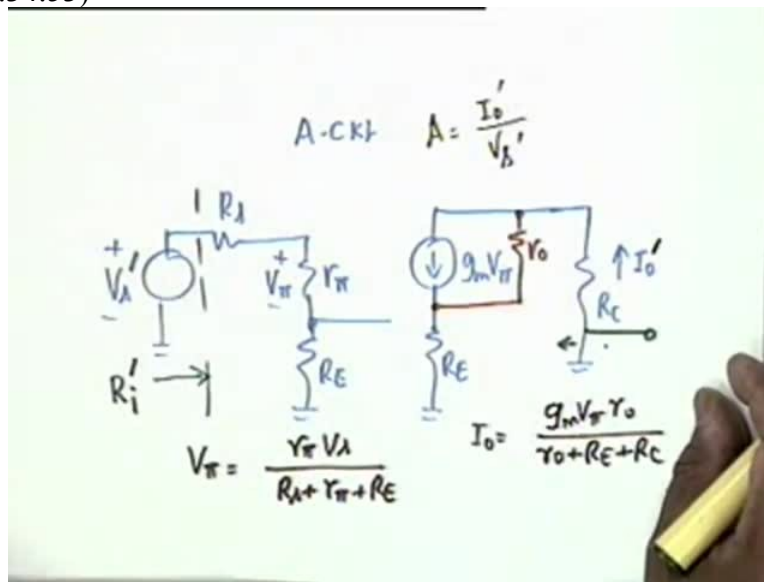 A-CKt A = I₀' / V_s'
R_s
+ V_s' -
+ V_π - r_π
g_m V_π
r_o
↑ I₀'
R_C
R_i'
R_E
R_E
V_π = r_π V_s / R_s + r_π + R_E
I₀ = g_m V_π r_o / r_o + R_E + R_C